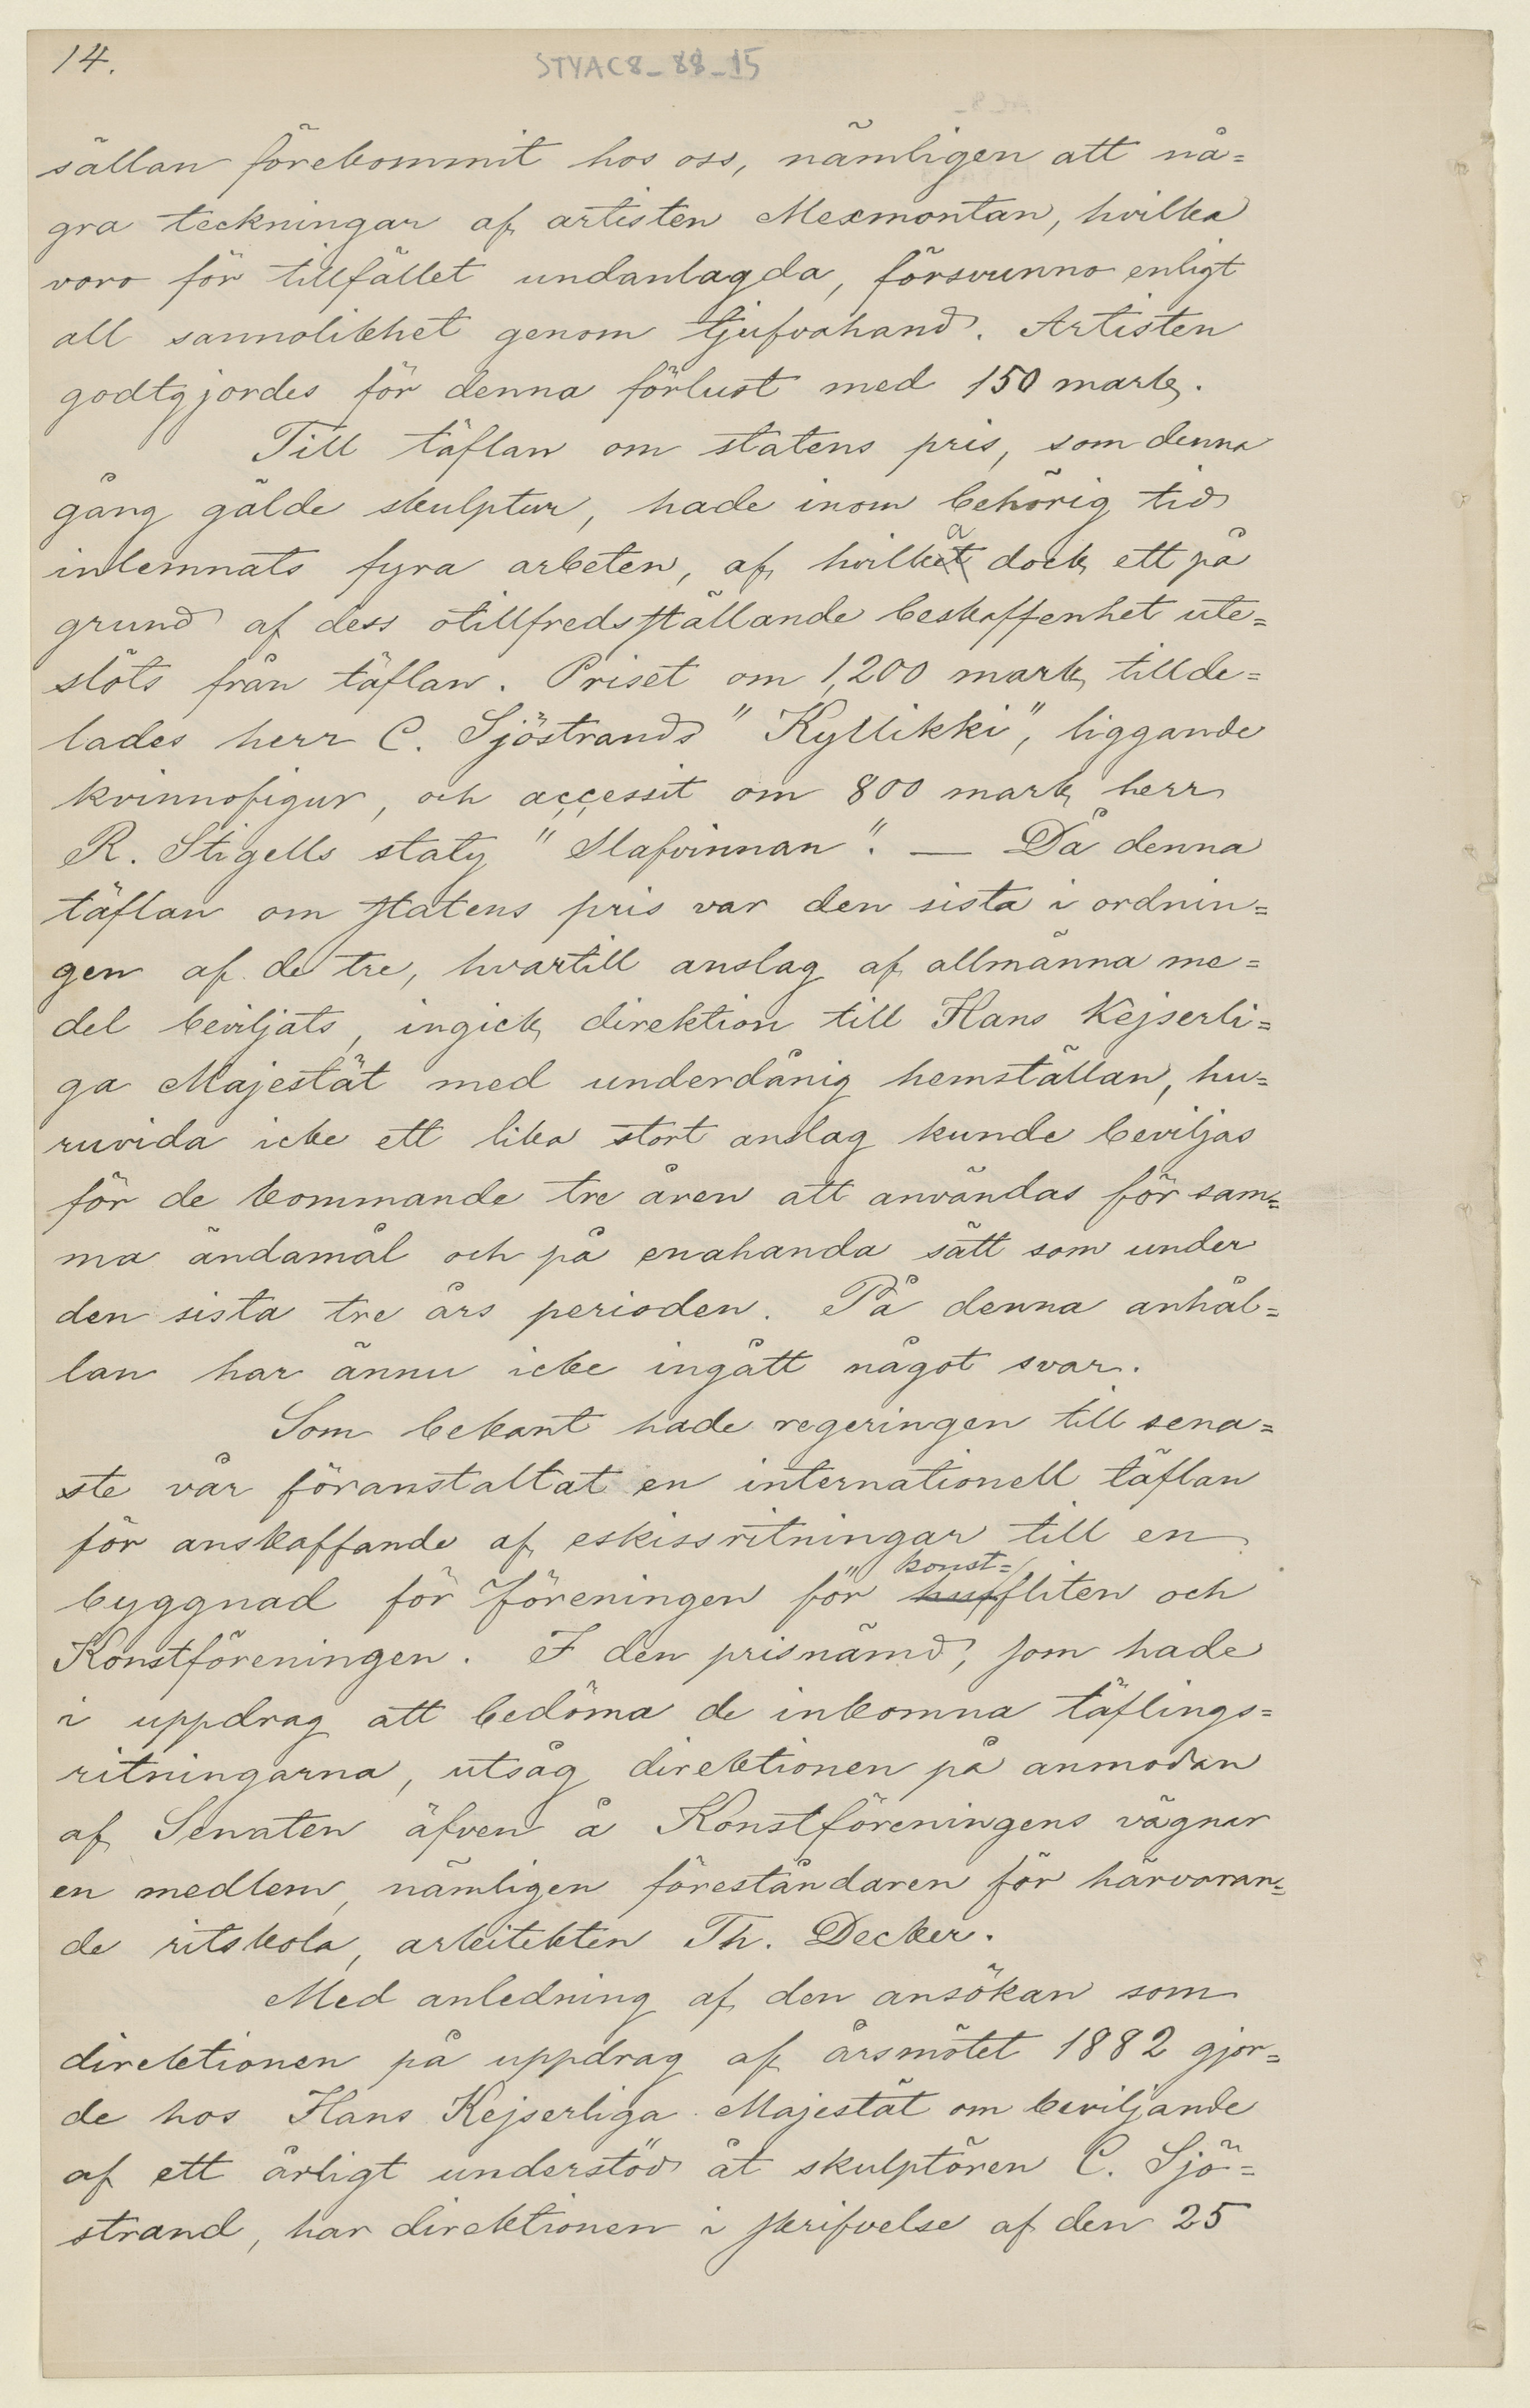 14.
STYAC8_88_15
sällan förekommit hos oss, nämligen att nå=
gra teckningar af artisten Mexmontan, hvilka
voro för tillfället undanlagda, försvunno enligt
all sannolikhet genom tjufvahand. Artisten
godtgjordes för denna förlust med 150 mark.
Till täflan om statens pris, som denna
gång gälde skulptur, hade inom behörig tid
inlemnats fyra arbeten, af hvilka dock ett på
grund af dess otillfredsställande beskaffenhet ute=
slöts från täflan. Priset om 1,200 mark tillde=
lades herr C. Sjöstrands "Kyllikki", liggande
kvinnofigur, och accessit om 800 mark herr
R. Stigells staty "Slafvinnan". — Då denna
täflan om statens pris var den sista i ordnin=
gen af de tre, hvartill anslag af allmänna me=
del beviljats, ingick direktion till Hans Kejserli=
ga Majestät med underdånig hemställan, hu=
ruvida icke ett lika stort anslag kunde beviljas
för de kommande tre åren att användas för sam=
ma ändamål och på enahanda sätt som under
den sista tre års perioden. På denna anhål=
lan har ännu icke ingått något svar.
Som bekant hade regeringen till sena=
ste vår föranstaltat en internationell täflan
för anskaffande af eskissritningar till en
byggnad för Föreningen för konst=fliten och
Konstföreningen. I den prisnämd, som hade
i uppdrag att bedöma de inkomna täflings=
ritningarna, utsåg direktionen på anmodan
af Senaten äfven å Konstföreningens vägnar
en medlem, nämligen föreståndaren för härvaran=
de ritskola, arkitekten Th. Decker.
Med anledning af den ansökan som
direktionen på uppdrag af årsmötet 1882 gjor=
de hos Hans Kejserliga Majestät om beviljande
af ett årligt understöd åt skulptören C. Sjö=
strand, har direktionen i skrifvelse af den 25